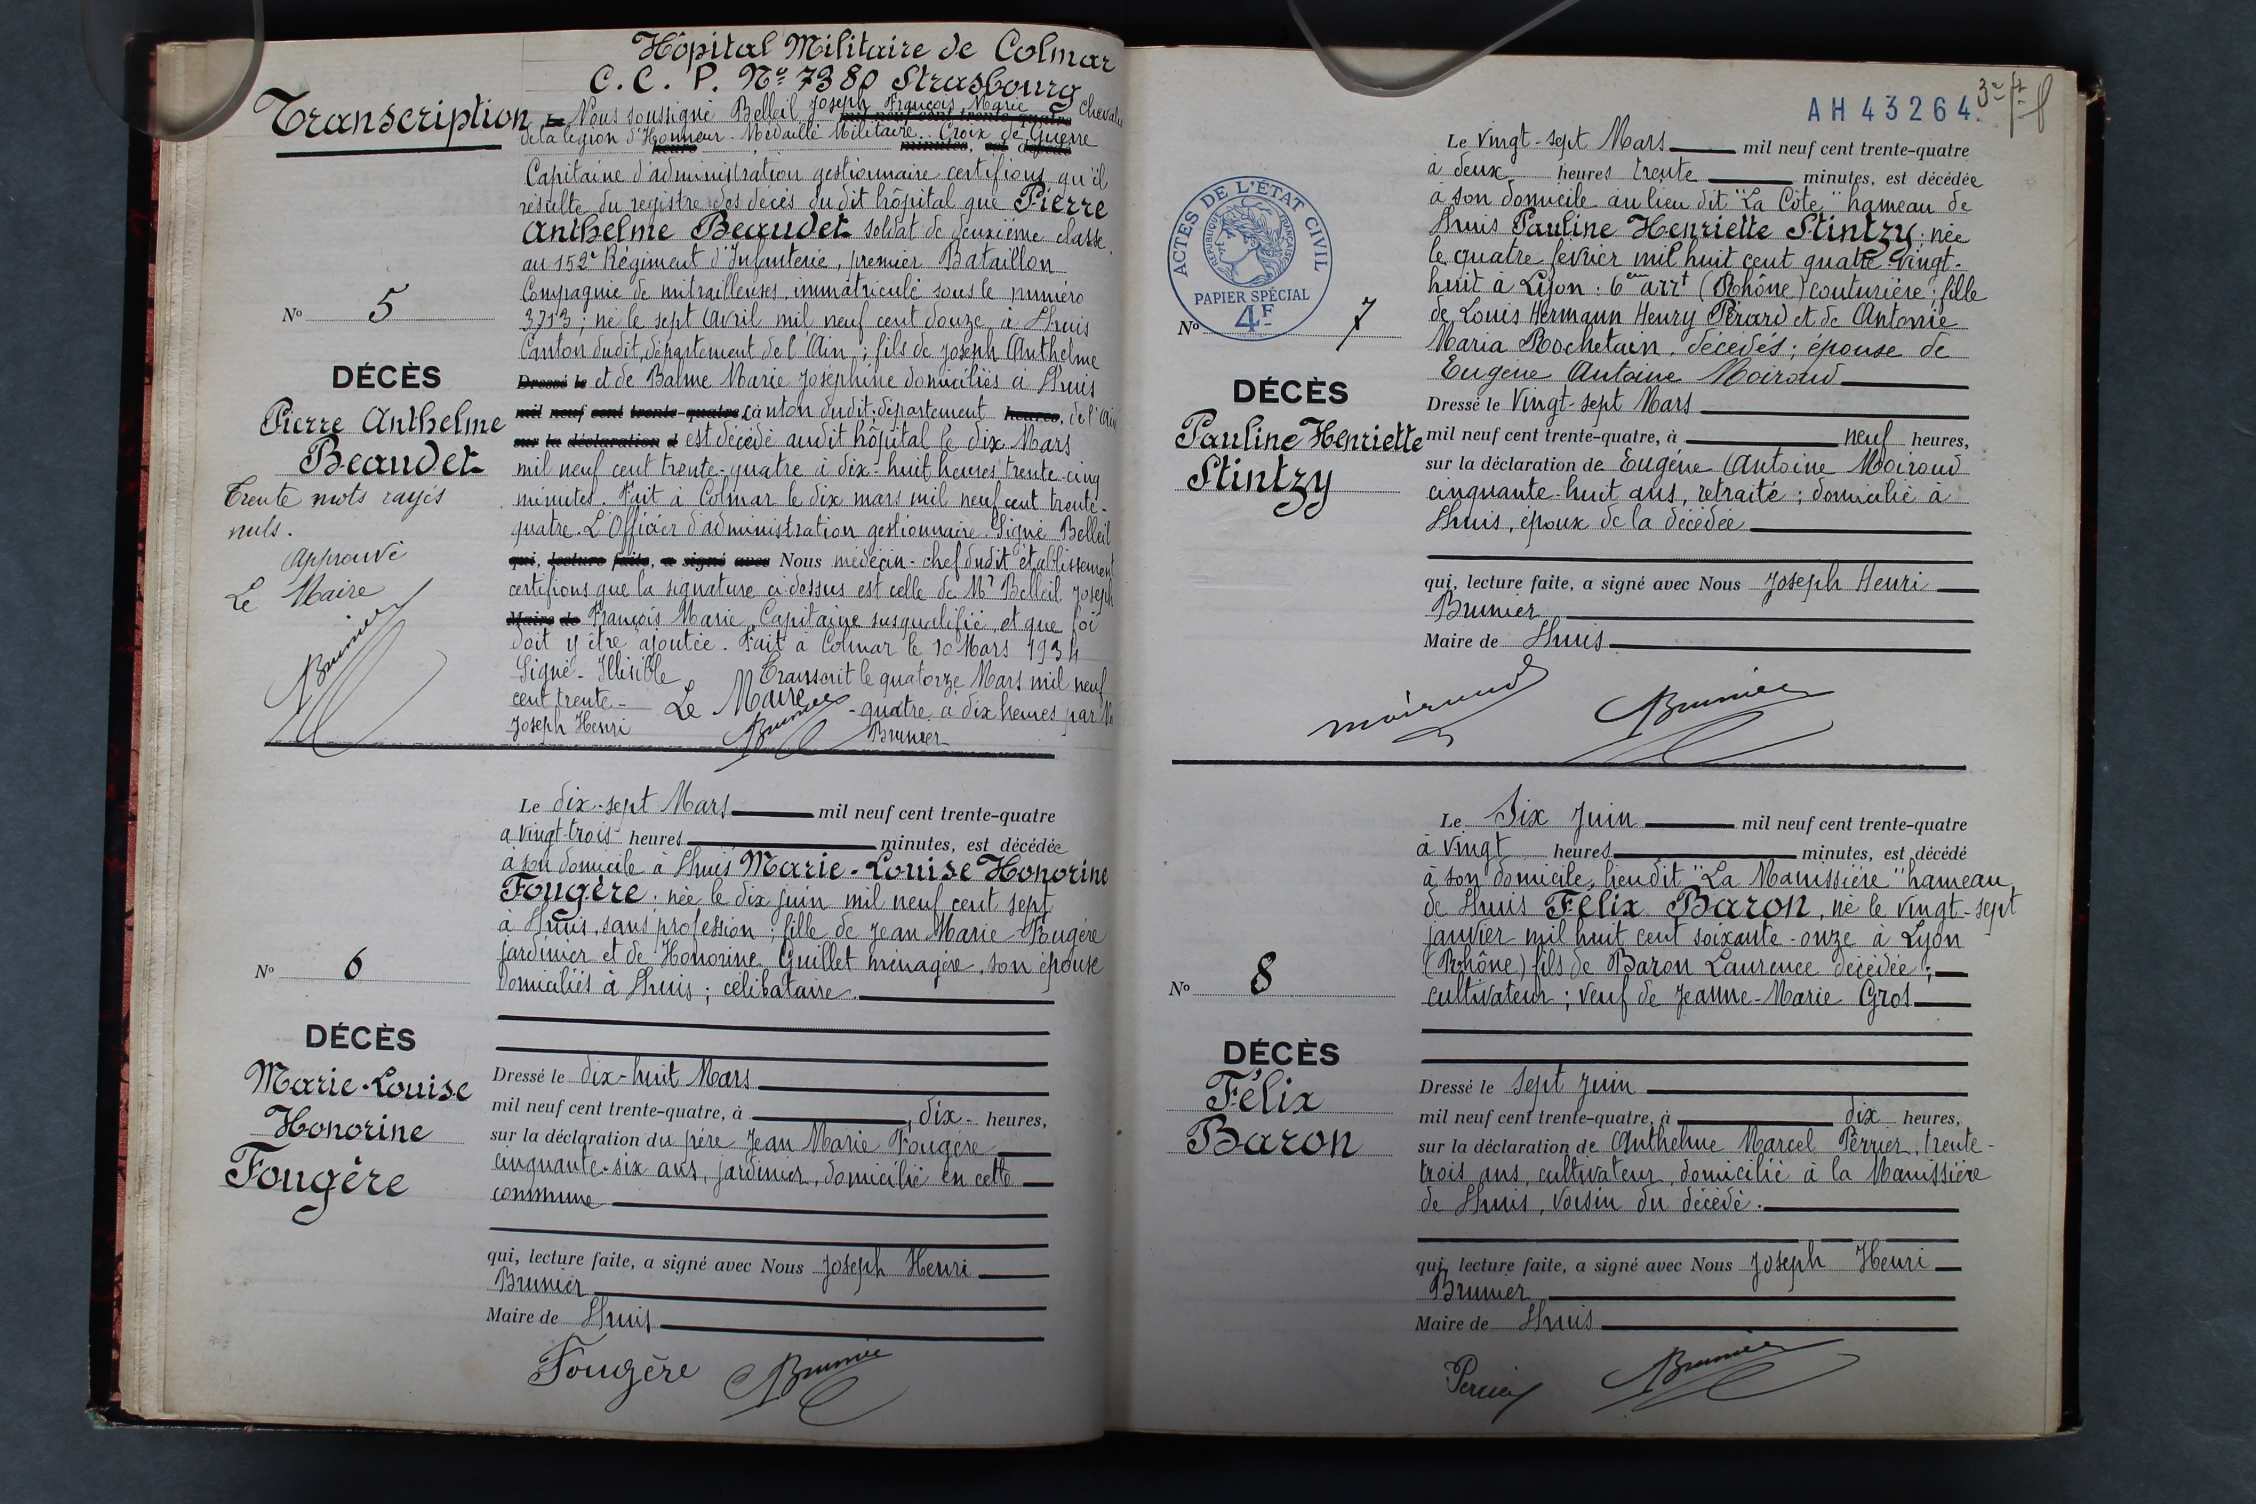 Hôpital Militaire de Colmar
C. C. P. Nº 7380 Strasbourg
Transcription
Le Nous soussigné Belleil Joseph François Marie mil neuf cent trente-quatre Chevalier
de la légion d'Honneur - Médaille Militaire - Croix de Guerre
heures minutes, est décédé
Capitaine d'administration gestionnaire certifions qu'il
résulte du registre des décès dudit hôpital que Pierre
Anthelme Beaudet soldat de deuxième classe
au 152e Régiment d'Infanterie, premier Bataillon
Compagnie de mitrailleuses immatriculé sous le numéro
3713 ; né le sept Avril mil neuf cent douze à Lhuis
Canton dudit, département de l'Ain ; fils de Joseph Anthelme
Dressé le et de Balme Marie Joséphine domiciliés à Lhuis
mil neuf cent trente-quatre, canton dudit, département heures, de l'Ain
sur la déclaration d est décédé audit hôpital le dix Mars
mil neuf cent trente-quatre à dix-huit heures trente cinq
minutes. Fait à Colmar le dix mars mil neuf cent trente-
quatre. L'Officier d'administration gestionnaire. Signé Belleil
qui, lecture faite, a signé avec Nous médecin-chef dudit établissement
certifions que la signature ci-dessus est celle de Mr Belleil Joseph
Maire de François Marie, Capitaine susqualifié, et que foi
doit y être ajoutée. Fait à Colmar le 10 Mars 1934
Signé - Illisible Transcrit le quatorze Mars mil neuf
cent trente - Le Maire - quatre à dix heures par
Joseph Henri Brunier Brunier
Nº 5
DÉCÈS
Pierre Anthelme
Beaudet
Trente mots rayés
nuls.
Approuvé
Le Maire
Brunier
Le dix-sept Mars mil neuf cent trente-quatre
a vingt-trois heures minutes, est décédée
à son domicile à Lhuis Marie-Louise Honorine
Fougère. née le dix juin mil neuf cent sept
à Lhuis, sans profession ; fille de Jean Marie Fougère
jardinier et de Honorine Guillet ménagère, son épouse
domiciliés à Lhuis ; célibataire.
Nº 6
DÉCÈS
Marie-Louise
Honorine
Fougère
Dressé le dix-huit Mars
mil neuf cent trente-quatre, à dix heures,
sur la déclaration du père Jean Marie Fougère
cinquante-six ans, jardinier, domicilié en cette
commune
qui, lecture faite, a signé avec Nous Joseph Henri
Brunier
Maire de Lhuis
Fougère Brunier
AH 43264.
ACTES DE L'ÉTAT CIVIL
RÉPUBLIQUE FRANÇAISE
PAPIER SPÉCIAL
4F
Le vingt-sept Mars mil neuf cent trente-quatre
à deux heures trente minutes, est décédée
à son domicile au lieu dit "La Côte" hameau de
Lhuis Pauline Henriette Stintzy. née
le quatre février mil huit cent quatre-vingt-
huit à Lyon : 6em arrt (Rhône) couturière ; fille
de Louis Hermann Henry Pérard et de Antonie
Maria Rochetain, décédés ; épouse de
Eugène Antoine Moiroud
Nº 7
DÉCÈS
Pauline Henriette
Stintzy
Dressé le Vingt-sept Mars
mil neuf cent trente-quatre, à neuf heures,
sur la déclaration de Eugène Antoine Moiroud
cinquante-huit ans, retraité ; domicilié à
Lhuis, époux de la décédée
qui, lecture faite, a signé avec Nous Joseph Henri
Brunier
Maire de Lhuis
Moiroud Brunier
Le Six Juin mil neuf cent trente-quatre
à vingt heures minutes, est décédé
à son domicile, lieu dit "La Manissière" hameau
de Lhuis Félix Baron, né le vingt-sept
janvier mil huit cent soixante-onze à Lyon
(Rhône) fils de Baron Laurence décédée ;
cultivateur ; veuf de Jeanne-Marie Gros
Nº 8
DÉCÈS
Félix
Baron
Dressé le sept juin
mil neuf cent trente-quatre, à dix heures,
sur la déclaration de Anthelme Marcel Perrier, trente-
trois ans, cultivateur, domicilié à la Manissière
de Lhuis, voisin du décédé.
qui, lecture faite, a signé avec Nous Joseph Henri
Brunier
Maire de Lhuis
Perrier Brunier